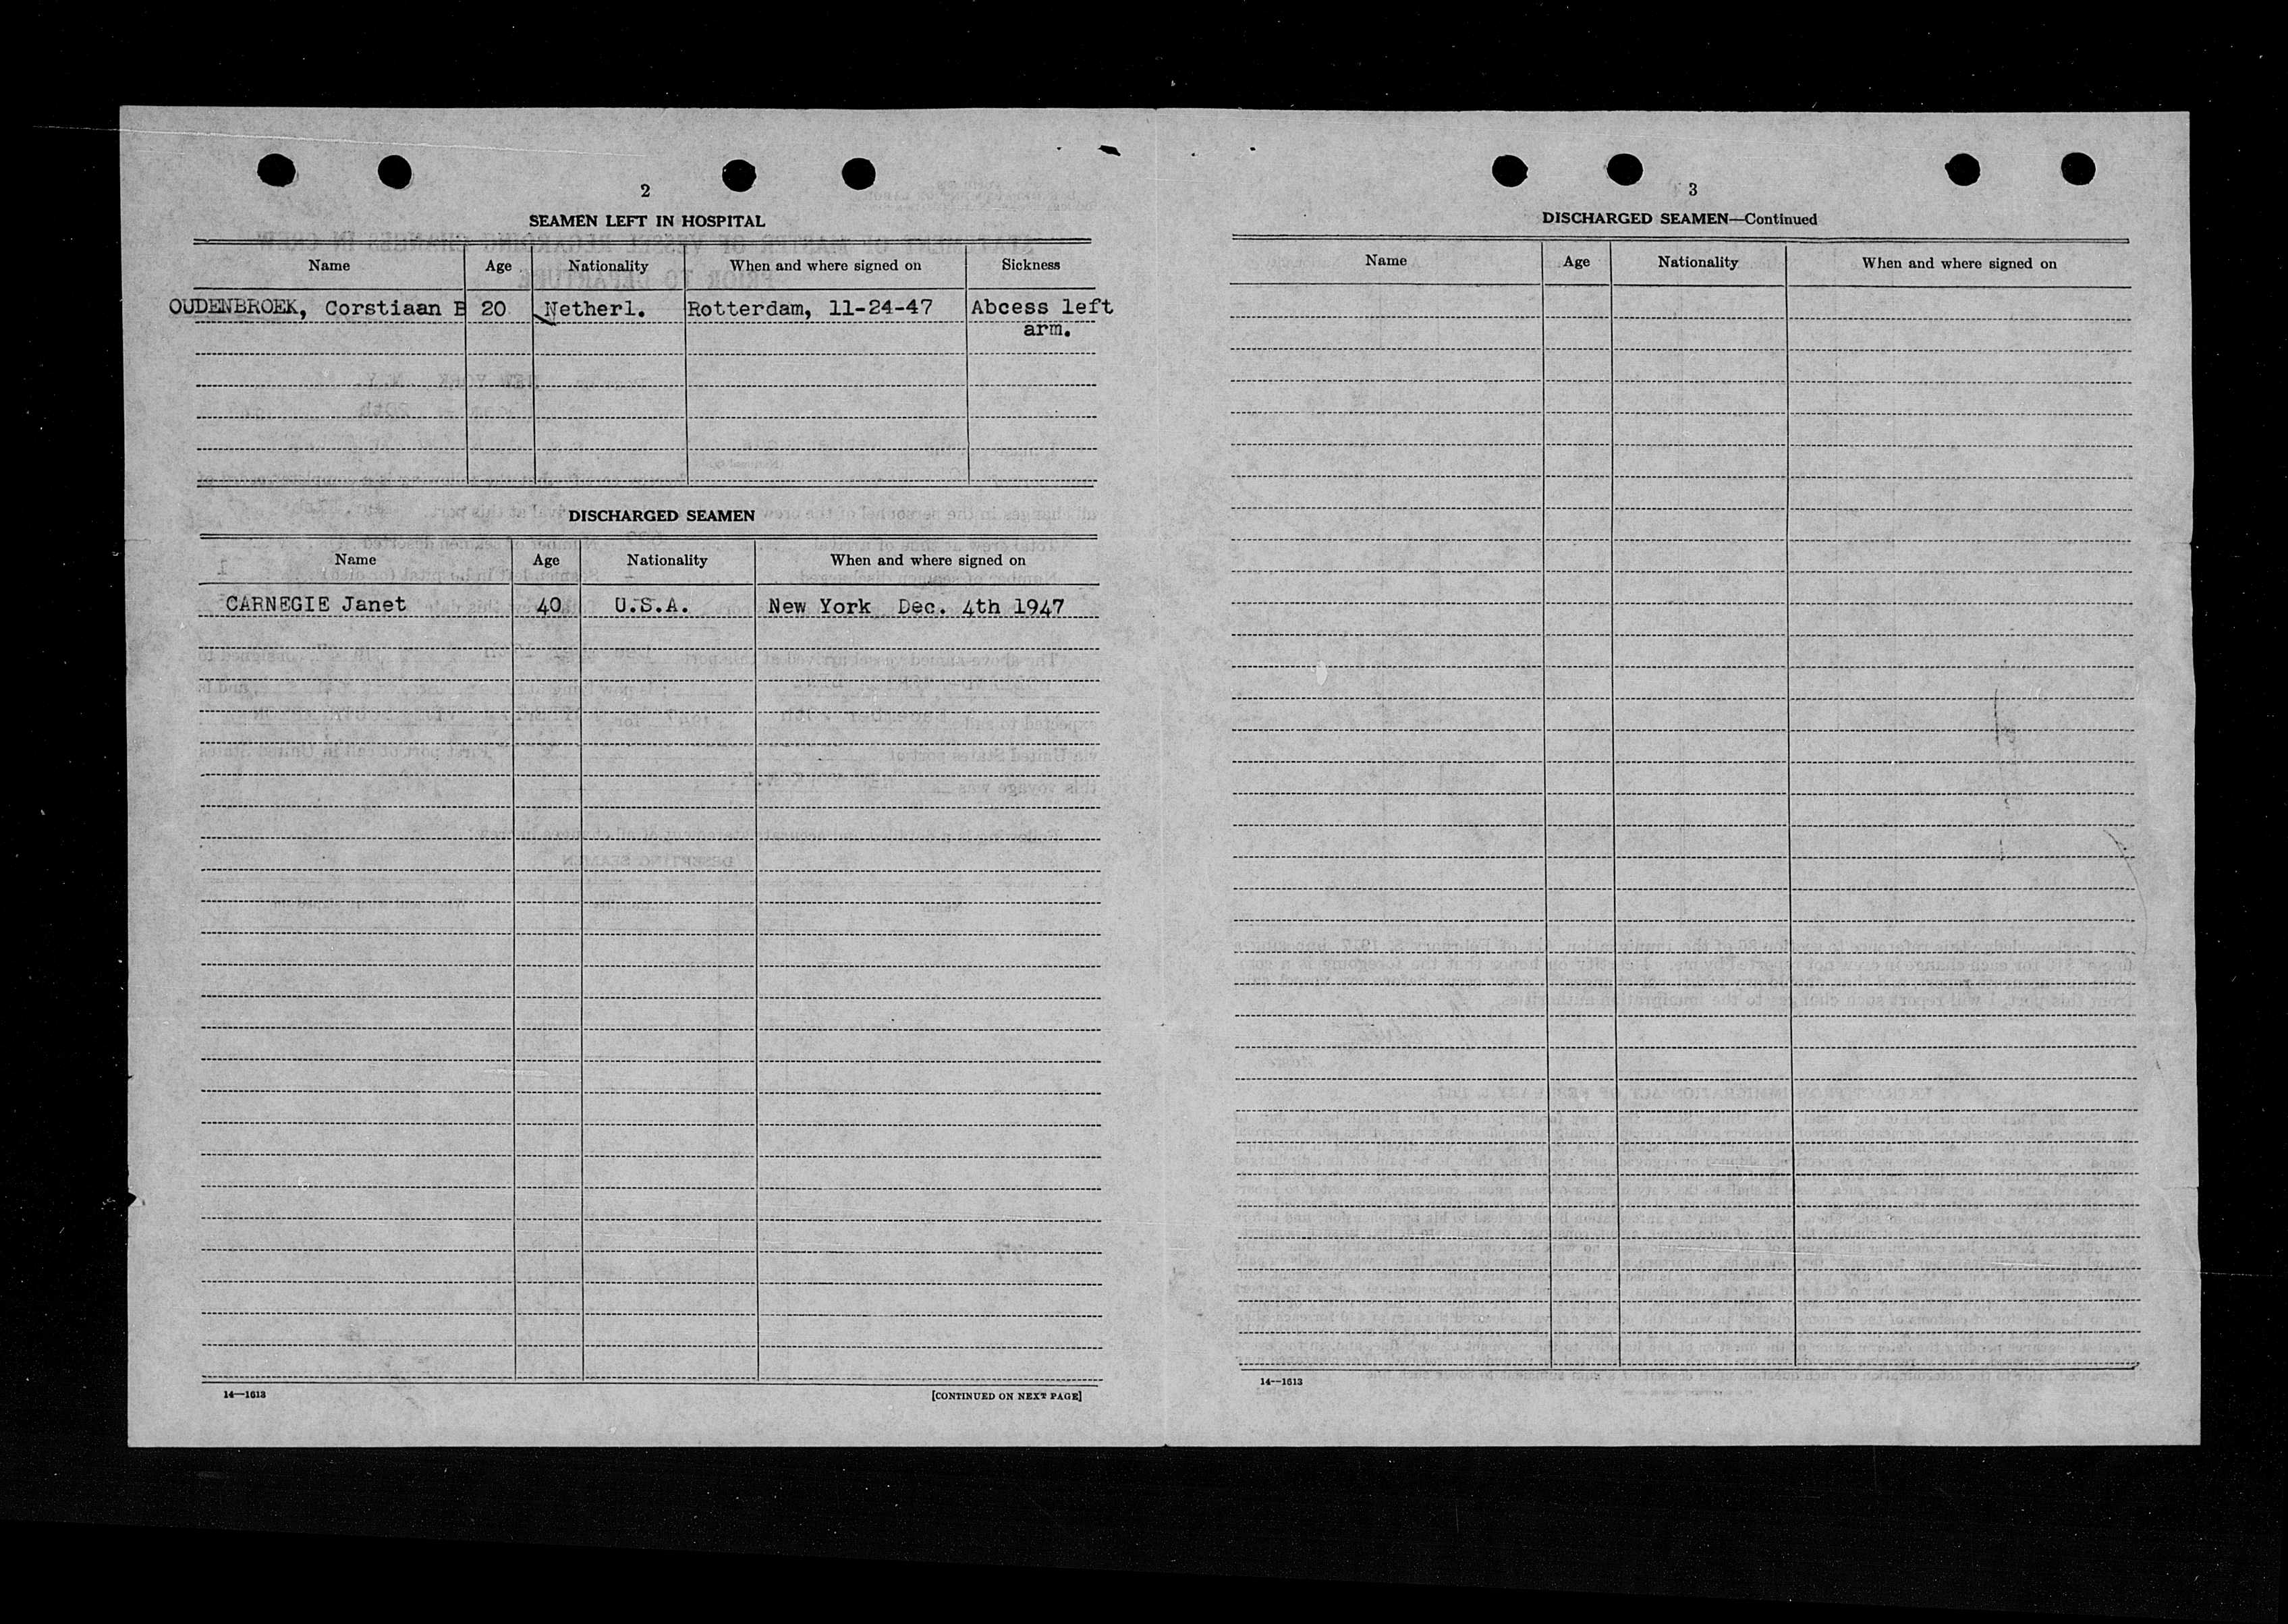 2
SEAMEN LEFT IN HOSPITAL
Name Age Nationality When and where signed on Sickness
OUDENBROEK, Corstiaan B 20 Netherl. Rotterdam, 11-24-47 Abcess left
arm.
DISCHARGED SEAMEN
Name Age Nationality When and where signed on
CARNEGIE Janet 40 U.S.A. New York Dec. 4th 1947
14—1613
[CONTINUED ON NEXT PAGE]
3
DISCHARGED SEAMEN—Continued
Name Age Nationality When and where signed on
14—1613